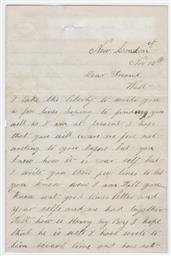 New London
Nov 15th
Dear Friend
Well
I take the liberty to write you
a few lines hoping to find you
well as I am at present I hope
that you will excuse me for not
writing to your before but you
know how it is your self but
I write you these few lines to let
you know how I am that you
know what good times Peller and
your selfe and me had together
that how is Henry my Boy I hope
that he is well I have wrote to
him several times and has not